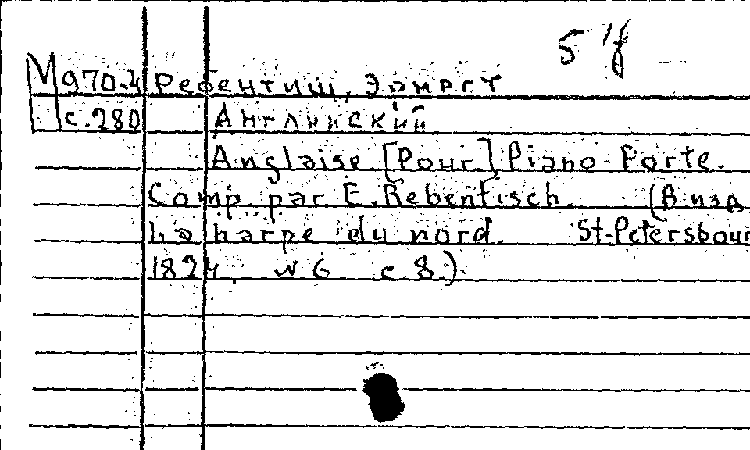 5
М970.4 Ребентиш, Эрнест
с.280 Английский
Anglaise [Pour] Piano-Forte.
Comp. par E. Rebentisch. (В изд
La harpe du nord. St-Petersbour
1824, № 6 с 8.)